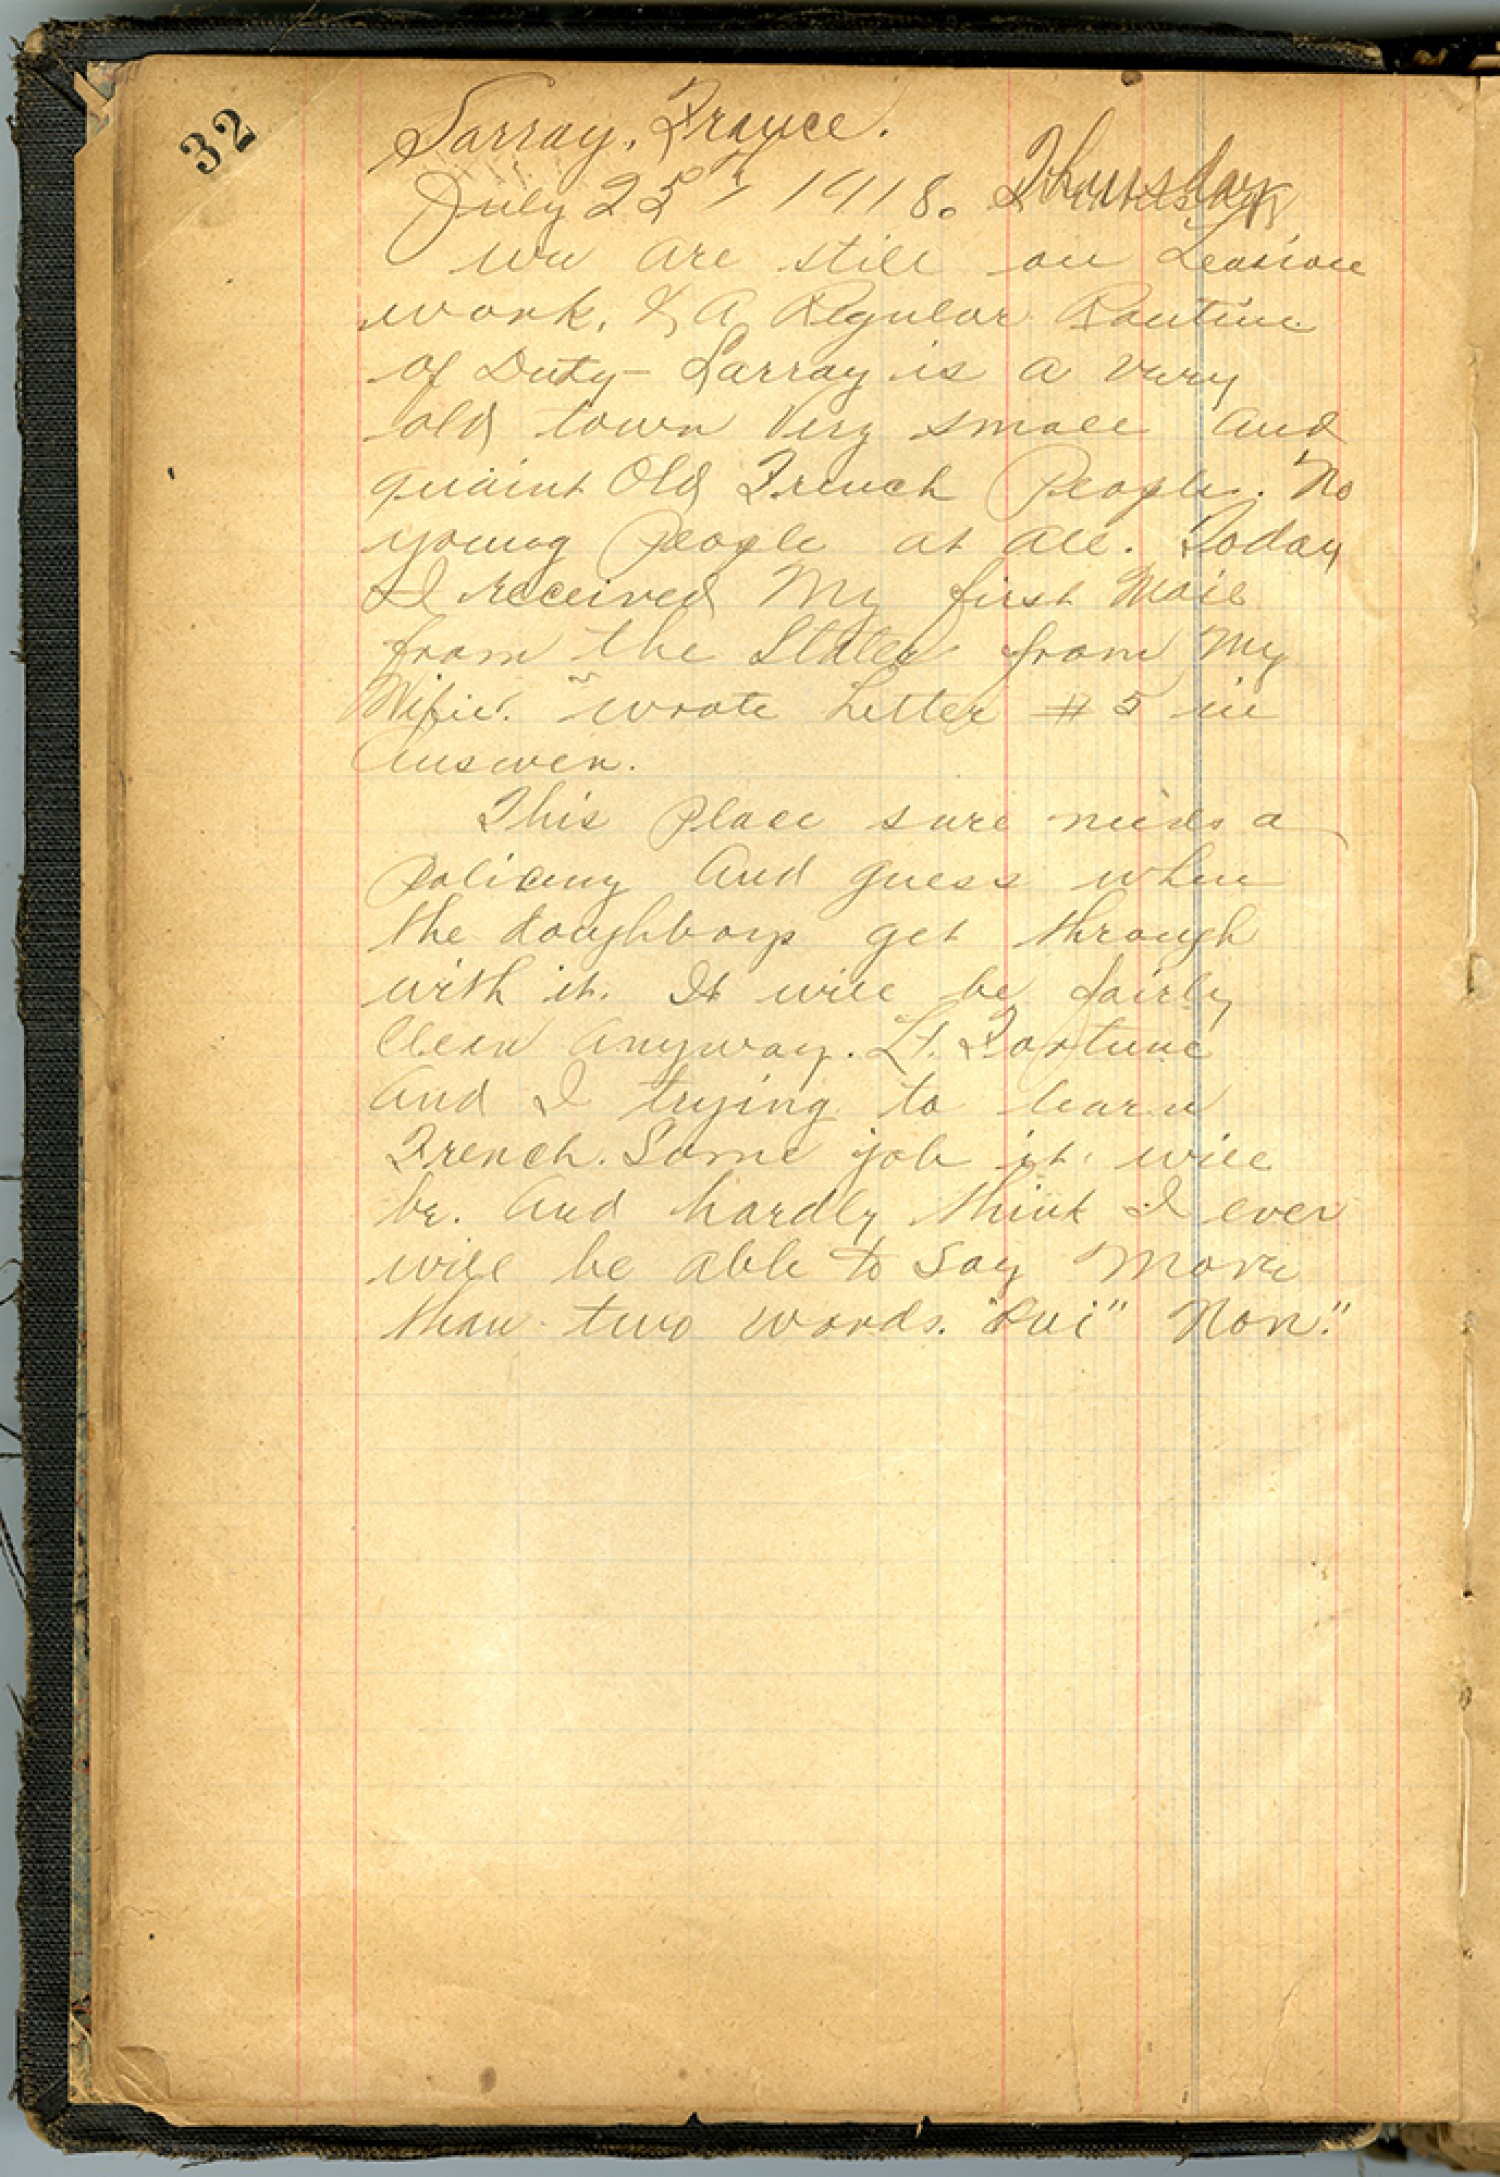 32
Sarray, France.
July 25th 1918. Thursday
We are still on Leasion
work, & A Regular Routine
of Duty - Sarray is a very
old town Very small and
quaint Old French People. No
young People at all. Today
I received My first Mail
from the States from My
Wifie. wrote Letter #5 in
Answer.
This place sure needs a
policing and guess when
the doughboys get through
with it. It will be fairly
clean anyway. Lt. Fortune
and I trying to learn
French. Some job it will
be. And hardly think I ever
will be able to say More
than two words. "Oui" Non."